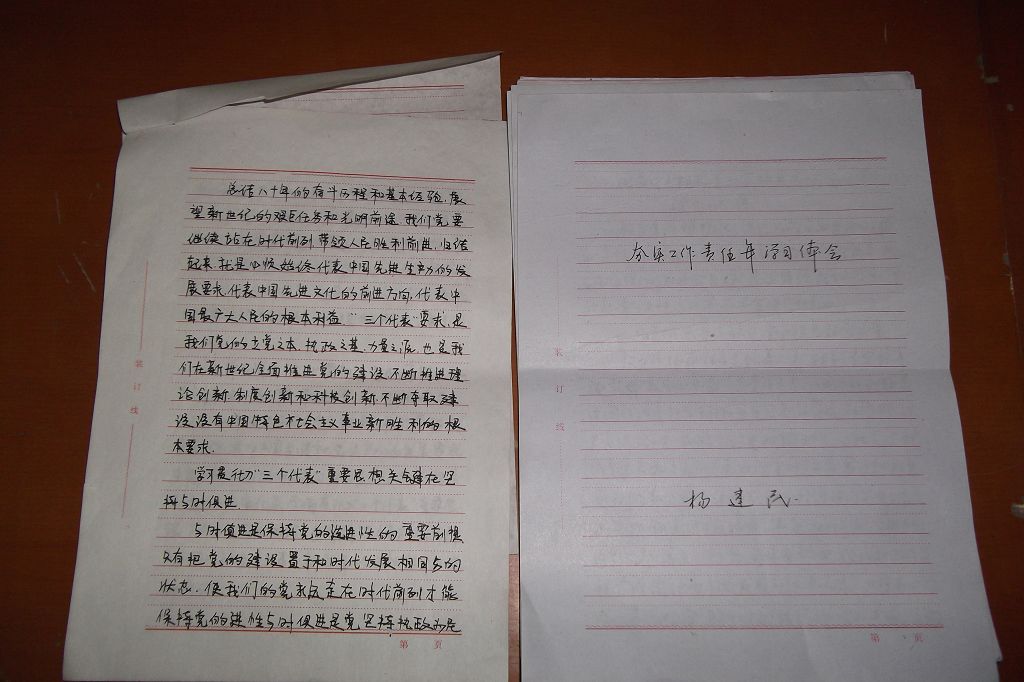 总结八十年的奋斗历程和基本经验,展
望新世纪的艰巨任务和光明前途,我们党要
继续站在时代前列,带领人民胜利前进,归结
起来,就是必须始终代表中国先进生产力的发
展要求,代表中国先进文化的前进方向,代表中
国最广大人民的根本利益。“三个代表”要求,是
我们党的立党之本、执政之基、力量之源,也是我
们在新世纪全面推进党的建设,不断推进理
论创新、制度创新和科技创新,不断夺取建
设没有中国特色社会主义事业新胜利的根
本要求.
学习履行“三个代表”重要思想关键在坚
持与时俱进.
与时俱进是保持党的先进性的重要前提
只有把党的建设置于和时代发展相同步的
状态,使我们的党永远走在时代前列才能
保持党的进性与时俱进是党坚持执政为民
装
订
线
第 页
夯实工作责任年学习体会
杨建民.
装
订
线
第 页